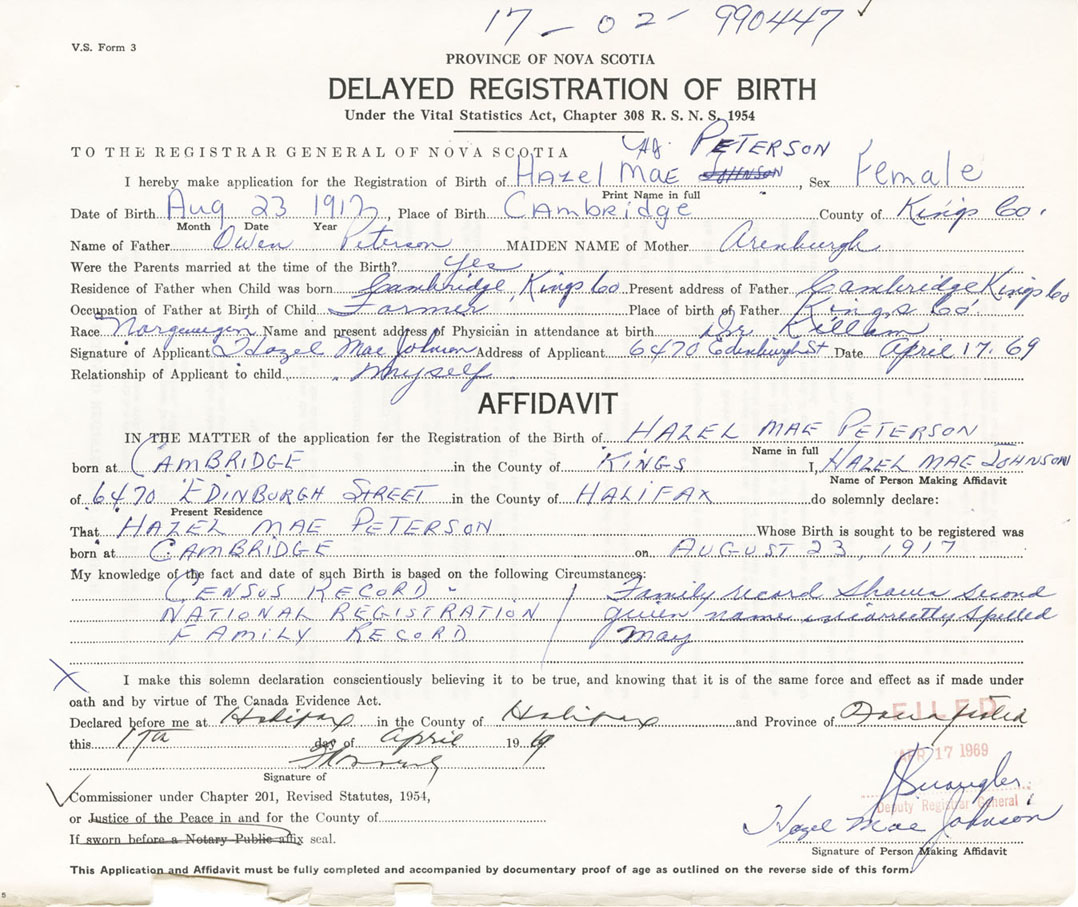 17 - 02 - 990447
V.S. Form 3
PROVINCE OF NOVA SCOTIA
DELAYED REGISTRATION OF BIRTH
Under the Vital Statistics Act, Chapter 308 R. S. N. S. 1954
TO THE REGISTRAR GENERAL OF NOVA SCOTIA PETERSON
I hereby make application for the Registration of Birth of Hazel Mae Johnson, Sex Female
Print Name in full
Date of Birth Aug 23 1917, Place of Birth Cambridge County of Kings Co.
Month Date Year
Name of Father Owen Peterson MAIDEN NAME of Mother Arenburgh
Were the Parents married at the time of the Birth? yes
Residence of Father when Child was born Cambridge, Kings Co Present address of Father Cambridge Kings Co
Occupation of Father at Birth of Child Farmer Place of birth of Father Kings Co.
Race Norgewegen Name and present address of Physician in attendance at birth Dr Killam
Signature of Applicant Hazel Mae Johnson Address of Applicant 6470 Edinburgh St Date April 17. 69
Relationship of Applicant to child myself
AFFIDAVIT
IN THE MATTER of the application for the Registration of the Birth of HAZEL MAE PETERSON
Name in full
born at CAMBRIDGE in the County of KINGS I, HAZEL MAE JOHNSON
Name of Person Making Affidavit
of 6470 EDINBURGH STREET in the County of HALIFAX do solemnly declare:
Present Residence
That HAZEL MAE PETERSON Whose Birth is sought to be registered was
born at CAMBRIDGE on AUGUST 23, 1917
My knowledge of the fact and date of such Birth is based on the following Circumstances:
CENSUS RECORD - / Family record shows second
NATIONAL REGISTRATION given name incorrectly spelled
FAMILY RECORD May
X I make this solemn declaration conscientiously believing it to be true, and knowing that it is of the same force and effect as if made under
oath and by virtue of The Canada Evidence Act.
Declared before me at Halifax in the County of Halifax and Province of Nova Scotia
FILED
this 17th day of April 1969
APR 17 1969
Signature of
Commissioner under Chapter 201, Revised Statutes, 1954,
Deputy Registrar General
or Justice of the Peace in and for the County of
Hazel Mae Johnson
If sworn before a Notary Public affix seal.
Signature of Person Making Affidavit
This Application and Affidavit must be fully completed and accompanied by documentary proof of age as outlined on the reverse side of this form.
5